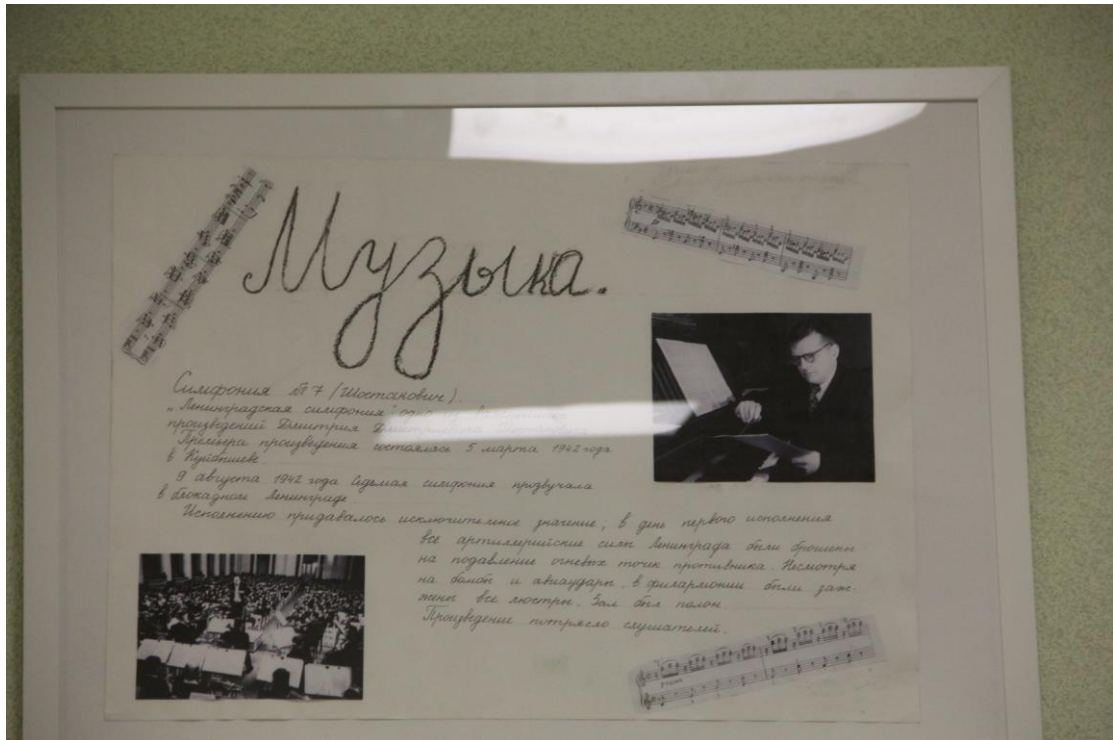 Музыка.
Симфония №7 (Шостакович).
"Ленинградская симфония"
произведений Дмитрия
Премьера произведения состоялась 5 марта 1942 года
в Куйбышеве
9 августа 1942 года Седьмая симфония прозвучала
в блокадном Ленинграде.
Исполнению придавалось исключительное значение, в день первого исполнения
все артиллерийские силы Ленинграда были брошены
на подавление огневых точек противника. Несмотря
на бомбы и авиаудары, в филармонии были заж-
жены все люстры. Зал был полон.
Произведение потрясло слушателей.